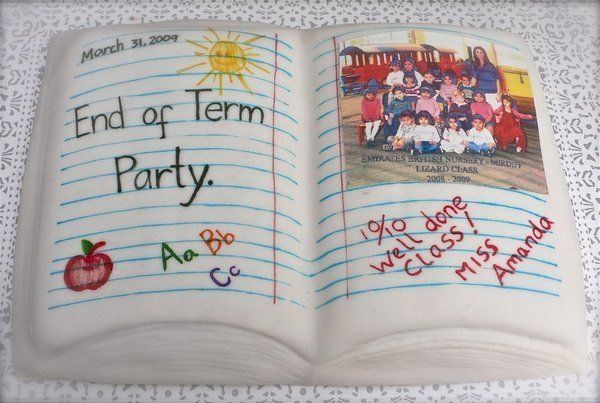 March 31, 2009
End of Term
Party.
Aa Bb
Cc
EMIRATES BRITISH NURSERY - MIRDIFF
LIZARD CLASS
2008 - 2009
10/10
Well done
Class!
Miss
Amanda